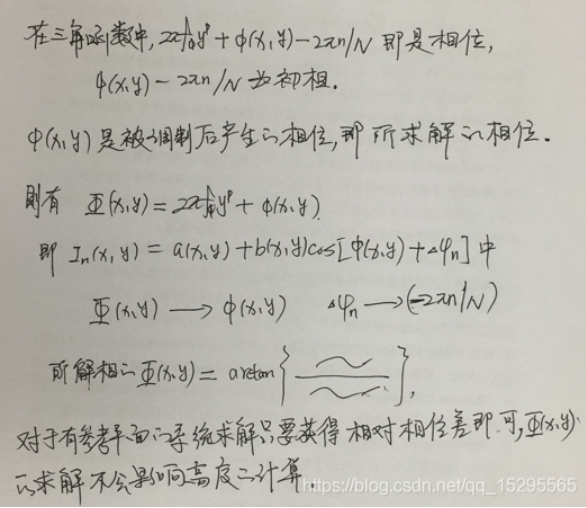 在三角函数中, 2πf₀yᵖ + φ(x,y) - 2πn/N 即是相位,
φ(x,y) - 2πn/N 为初相.
φ(x,y) 是被调制后产生的相位, 即所求解的相位.
则有 Φ(x,y) = 2πf₀yᵖ + φ(x,y)
即 Iₙ(x,y) = a(x,y) + b(x,y)cos[φ(x,y) + Δφₙ] 中
Φ(x,y) → φ(x,y) Δφₙ → (-2πn/N)
所解相的 Φ(x,y) = arctan { },
对于有参考平面的系统求解只要获得相对相位差即可, Φ(x,y)
的求解不会影响高度的计算.
https://blog.csdn.net/qq_15295565